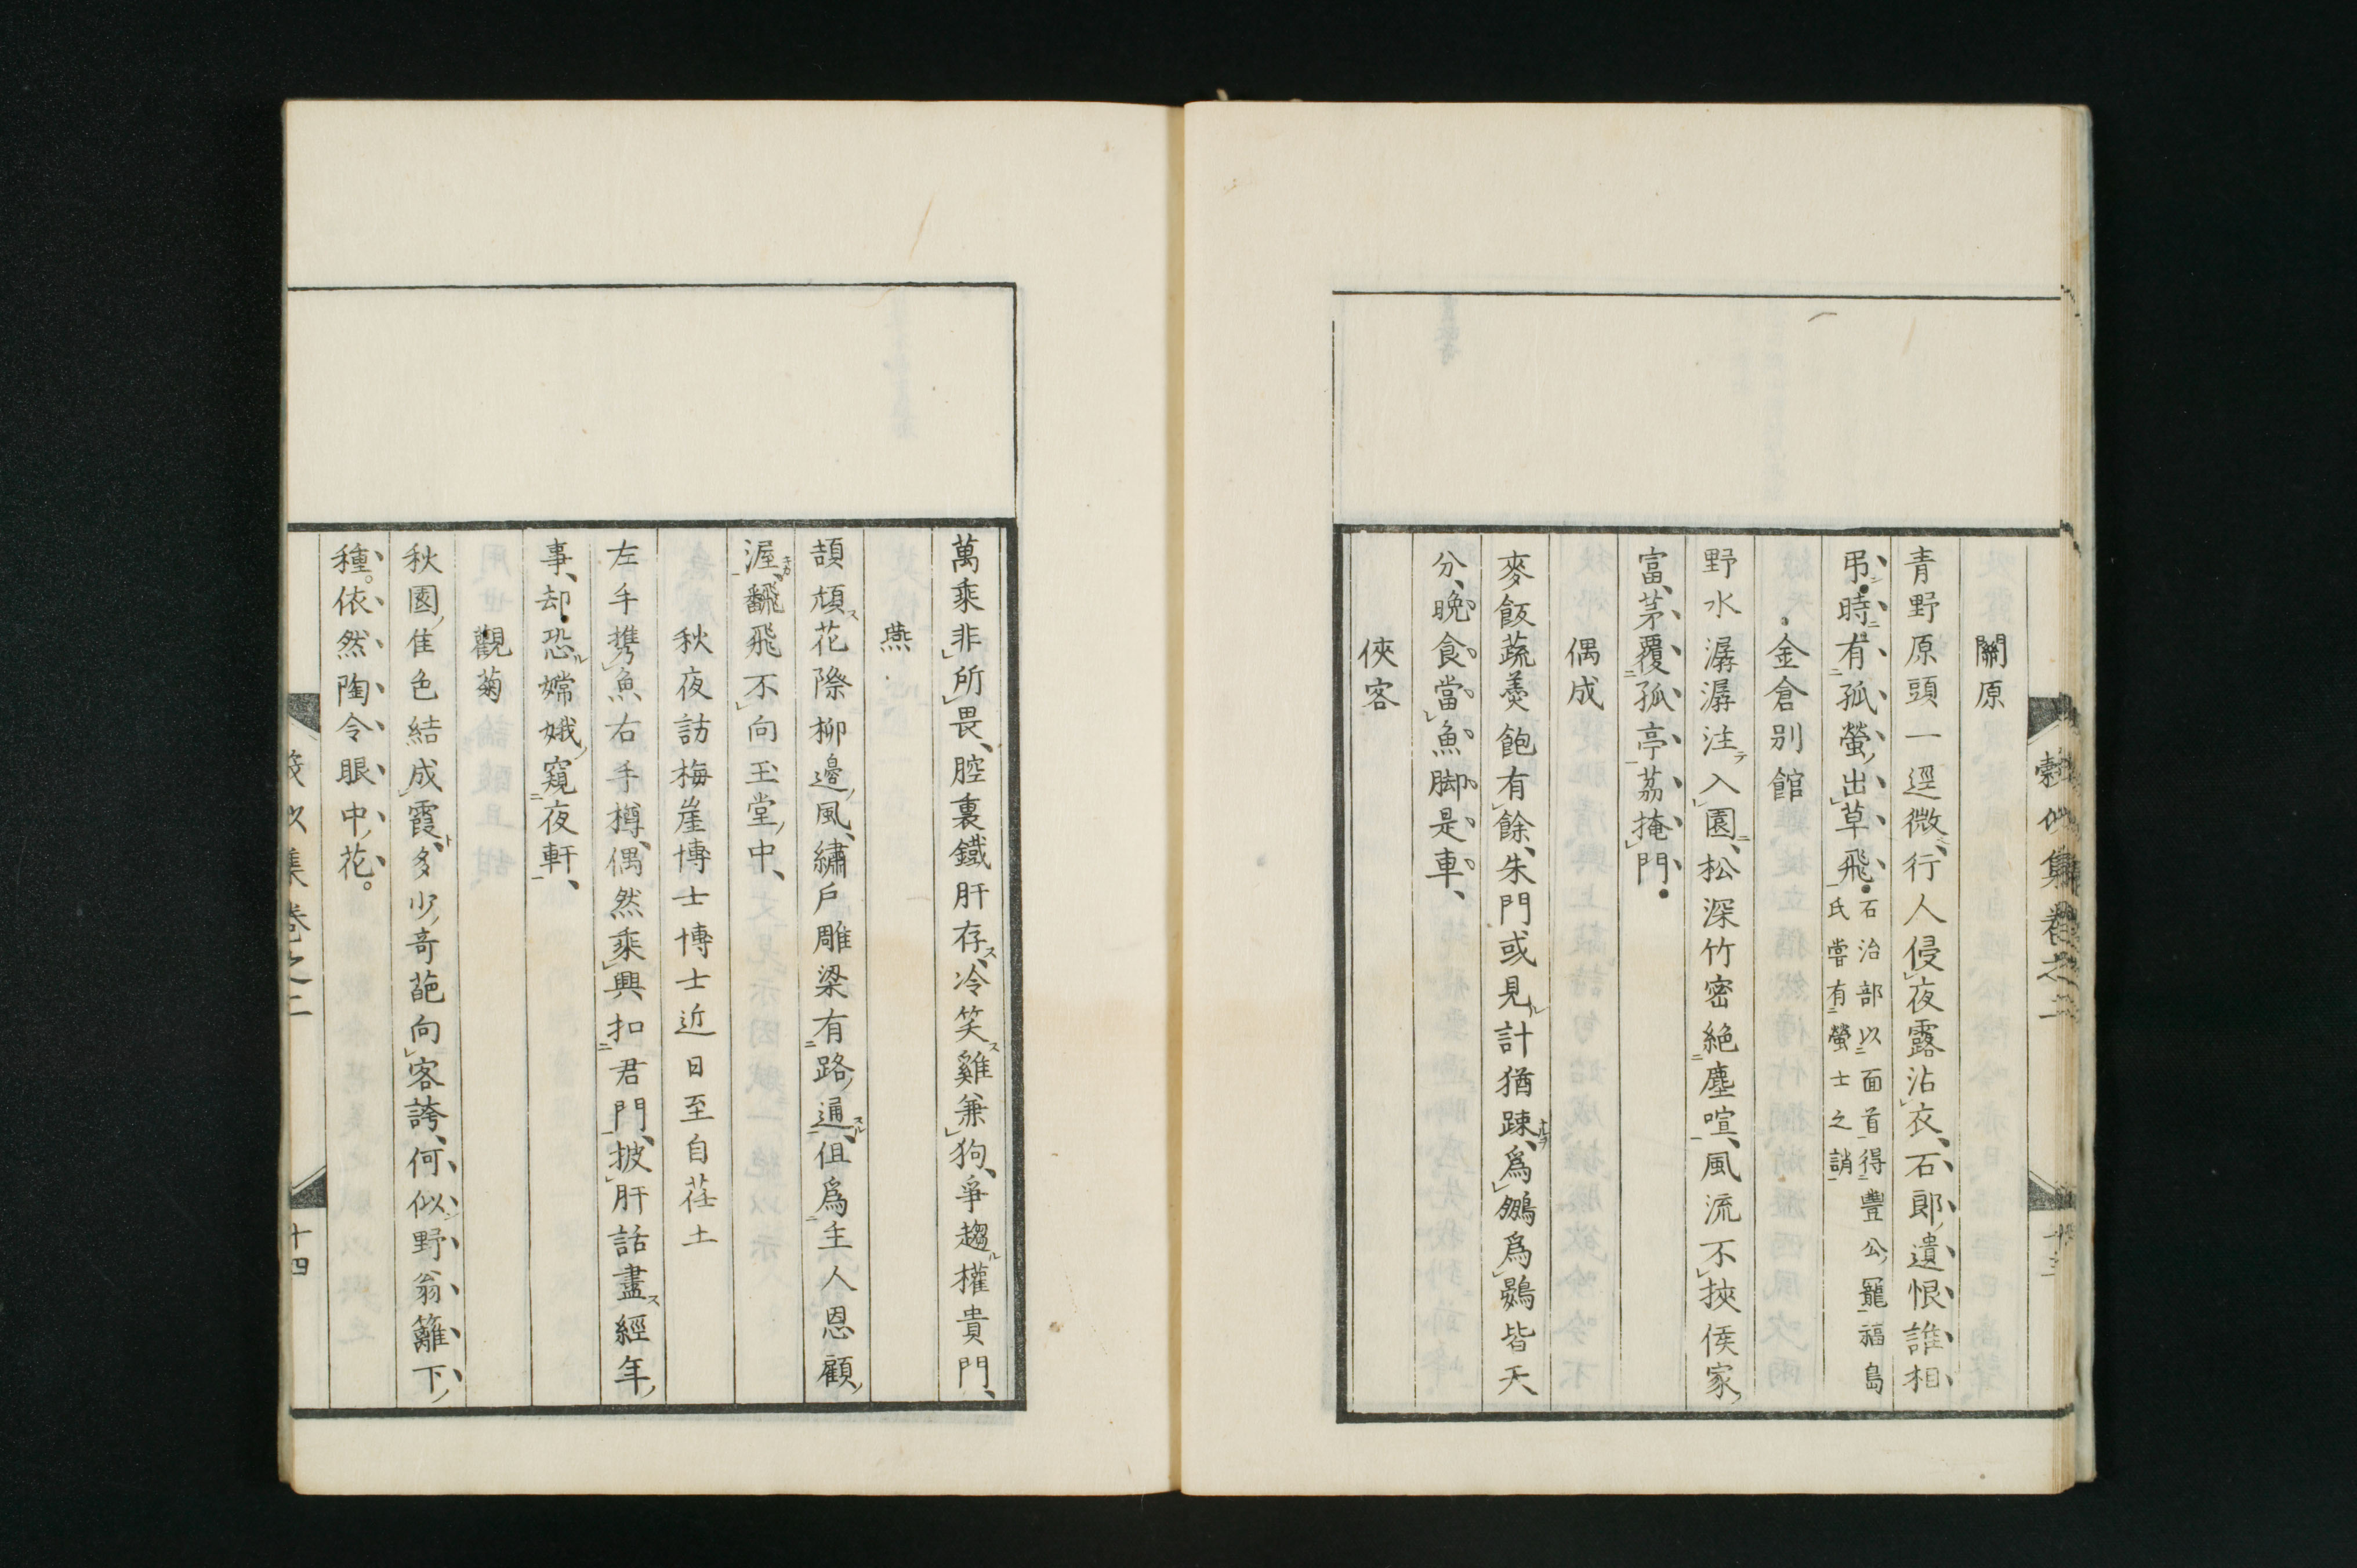 關原
青野原頭一逕微行人侵夜露沾衣石郎遺恨誰相
弔時有孤螢出草飛石治部以面首得豊公寵福島
氏嘗有螢士之誚
金倉別館
野水潺潺注入園松深竹密絕塵喧風流不挾侯家
富茅覆孤亭荔掩門
偶成
麥飯蔬羹飽有餘朱門或見計猶踈爲鷦爲鷃皆天
分晩食當魚脚是車
俠客
萬乘非所畏腔裏鐵肝存冷笑雞兼狗爭趨權貴門
燕
頡頏花際柳邊風繡戶雕梁有路通但爲主人恩顧
渥翻飛不向玉堂中
秋夜訪梅崖博士博士近日至自荏土
左手携魚右手樽偶然乘興扣君門披肝話盡經年
事却恐嫦娥窺夜軒
觀菊
秋園佳色結成霞多少奇葩向客誇何似野翁籬下
種依然陶令眼中花
集卷之二
十四